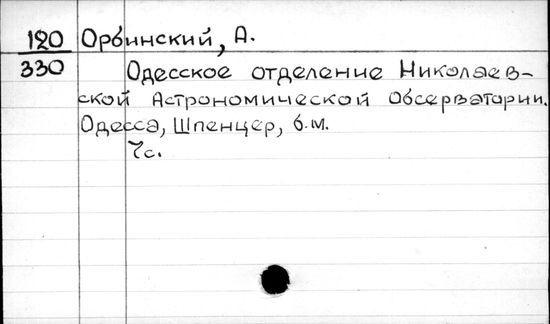 120 Орбинский, А.
330 Одесское отделение Николаев-
ской Астрономической Обсерватории.
Одесса, Шпенцер, б.м.
7с.